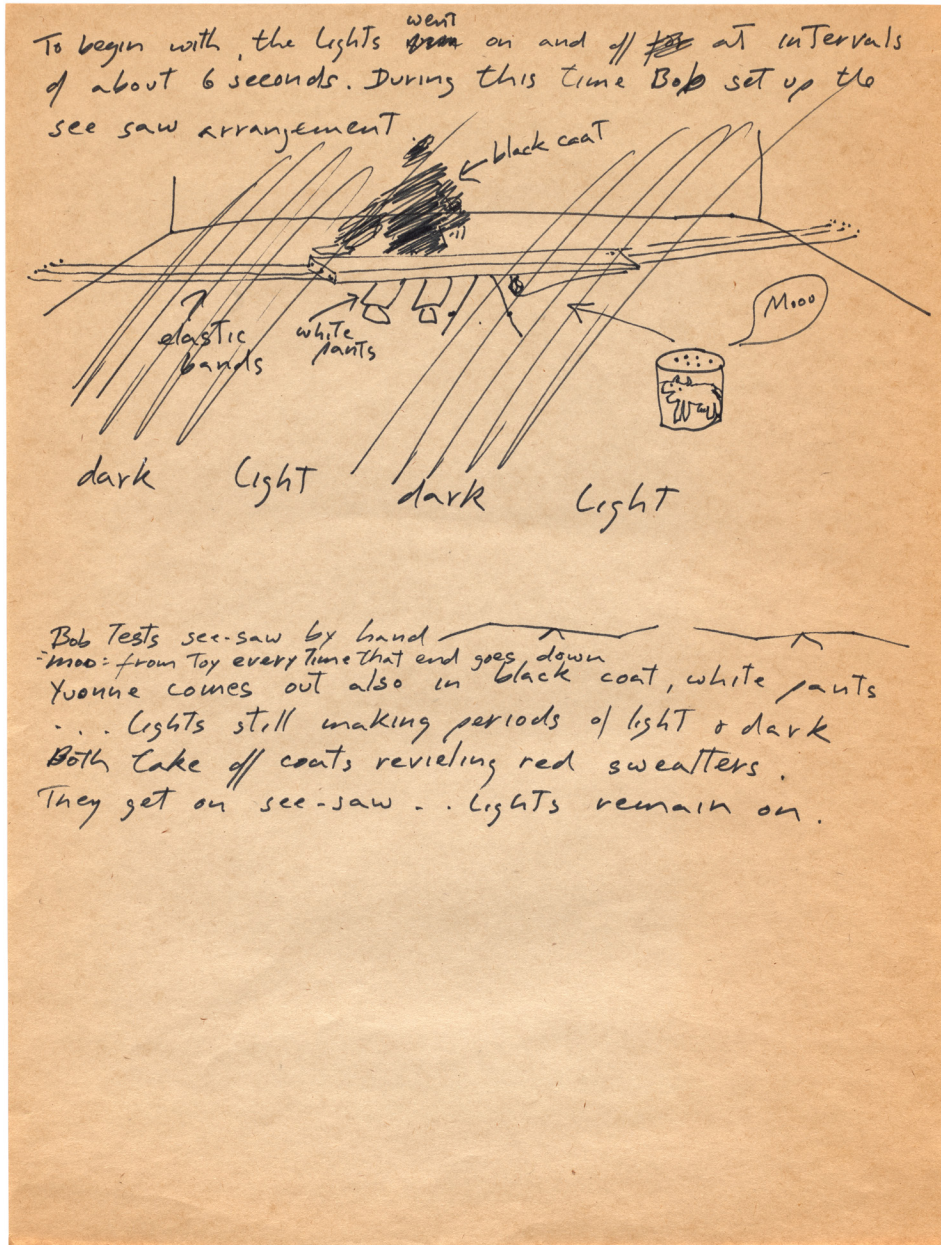 To begin with, the lights went on and off at intervals
of about 6 seconds. During this time Bob set up the
see saw arrangement
black coat
Mooo
elastic
bands
white
pants
dark light dark light
Bob Tests see-saw by hand
"moo" from Toy every Time that end goes down
Yvonne comes out also in black coat, white pants
... lights still making periods of light & dark
Both take off coats revieling red sweatters.
They get on see-saw .. lights remain on.